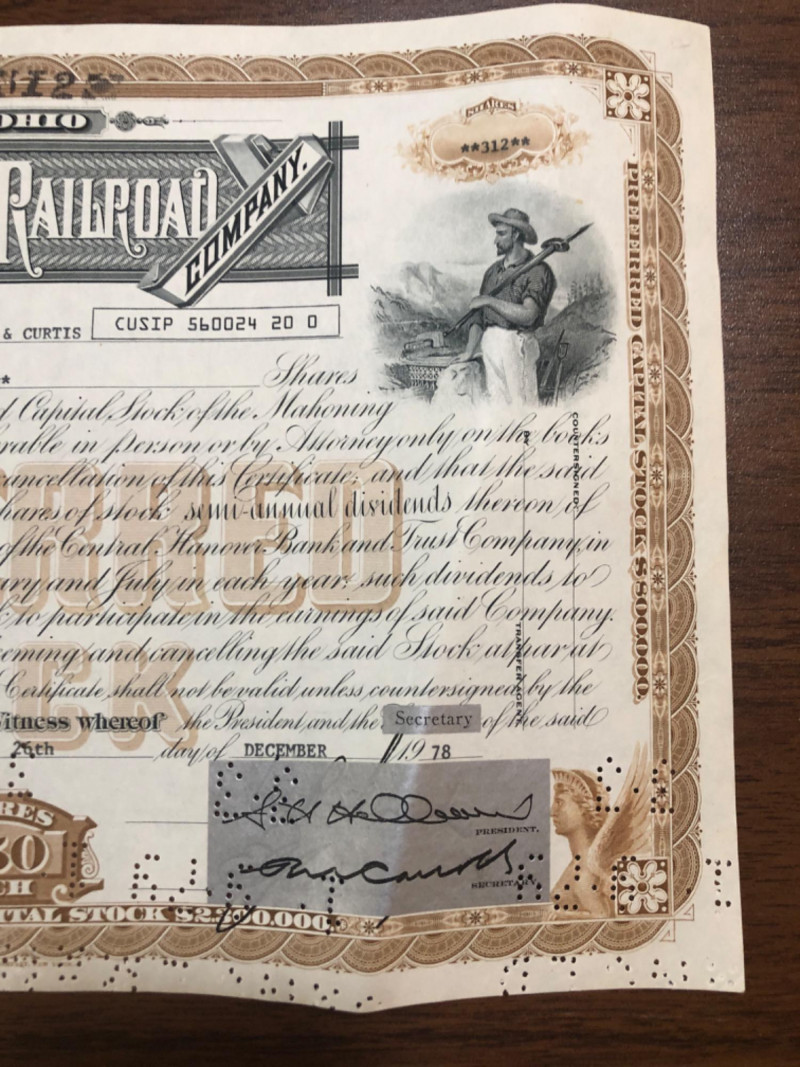 OHIO
SHARES
**312**
RAILROAD
COMPANY.
& CURTIS
CUSIP 560024 20 0
* Shares
Capital Stock of the Mahoning
in person or by Attorney only on the books
cancellation of this Certificate; and that the said
shares of stock semi-annual dividends thereon of
of the Central Hanover Bank and Trust Company, in
and July in each year, such dividends to
to participate in the earnings of said Company.
and cancelling the said Stock at par at
Certificate shall not be valid unless countersigned by the
Witness whereof the President, and the Secretary of the said
26th day of DECEMBER 1978
PRESIDENT.
SECRETARY
CAPITAL STOCK
COUNTERSIGNED:
BY
TRANSFER AGENT
PREFERRED CAPITAL STOCK $800,000.